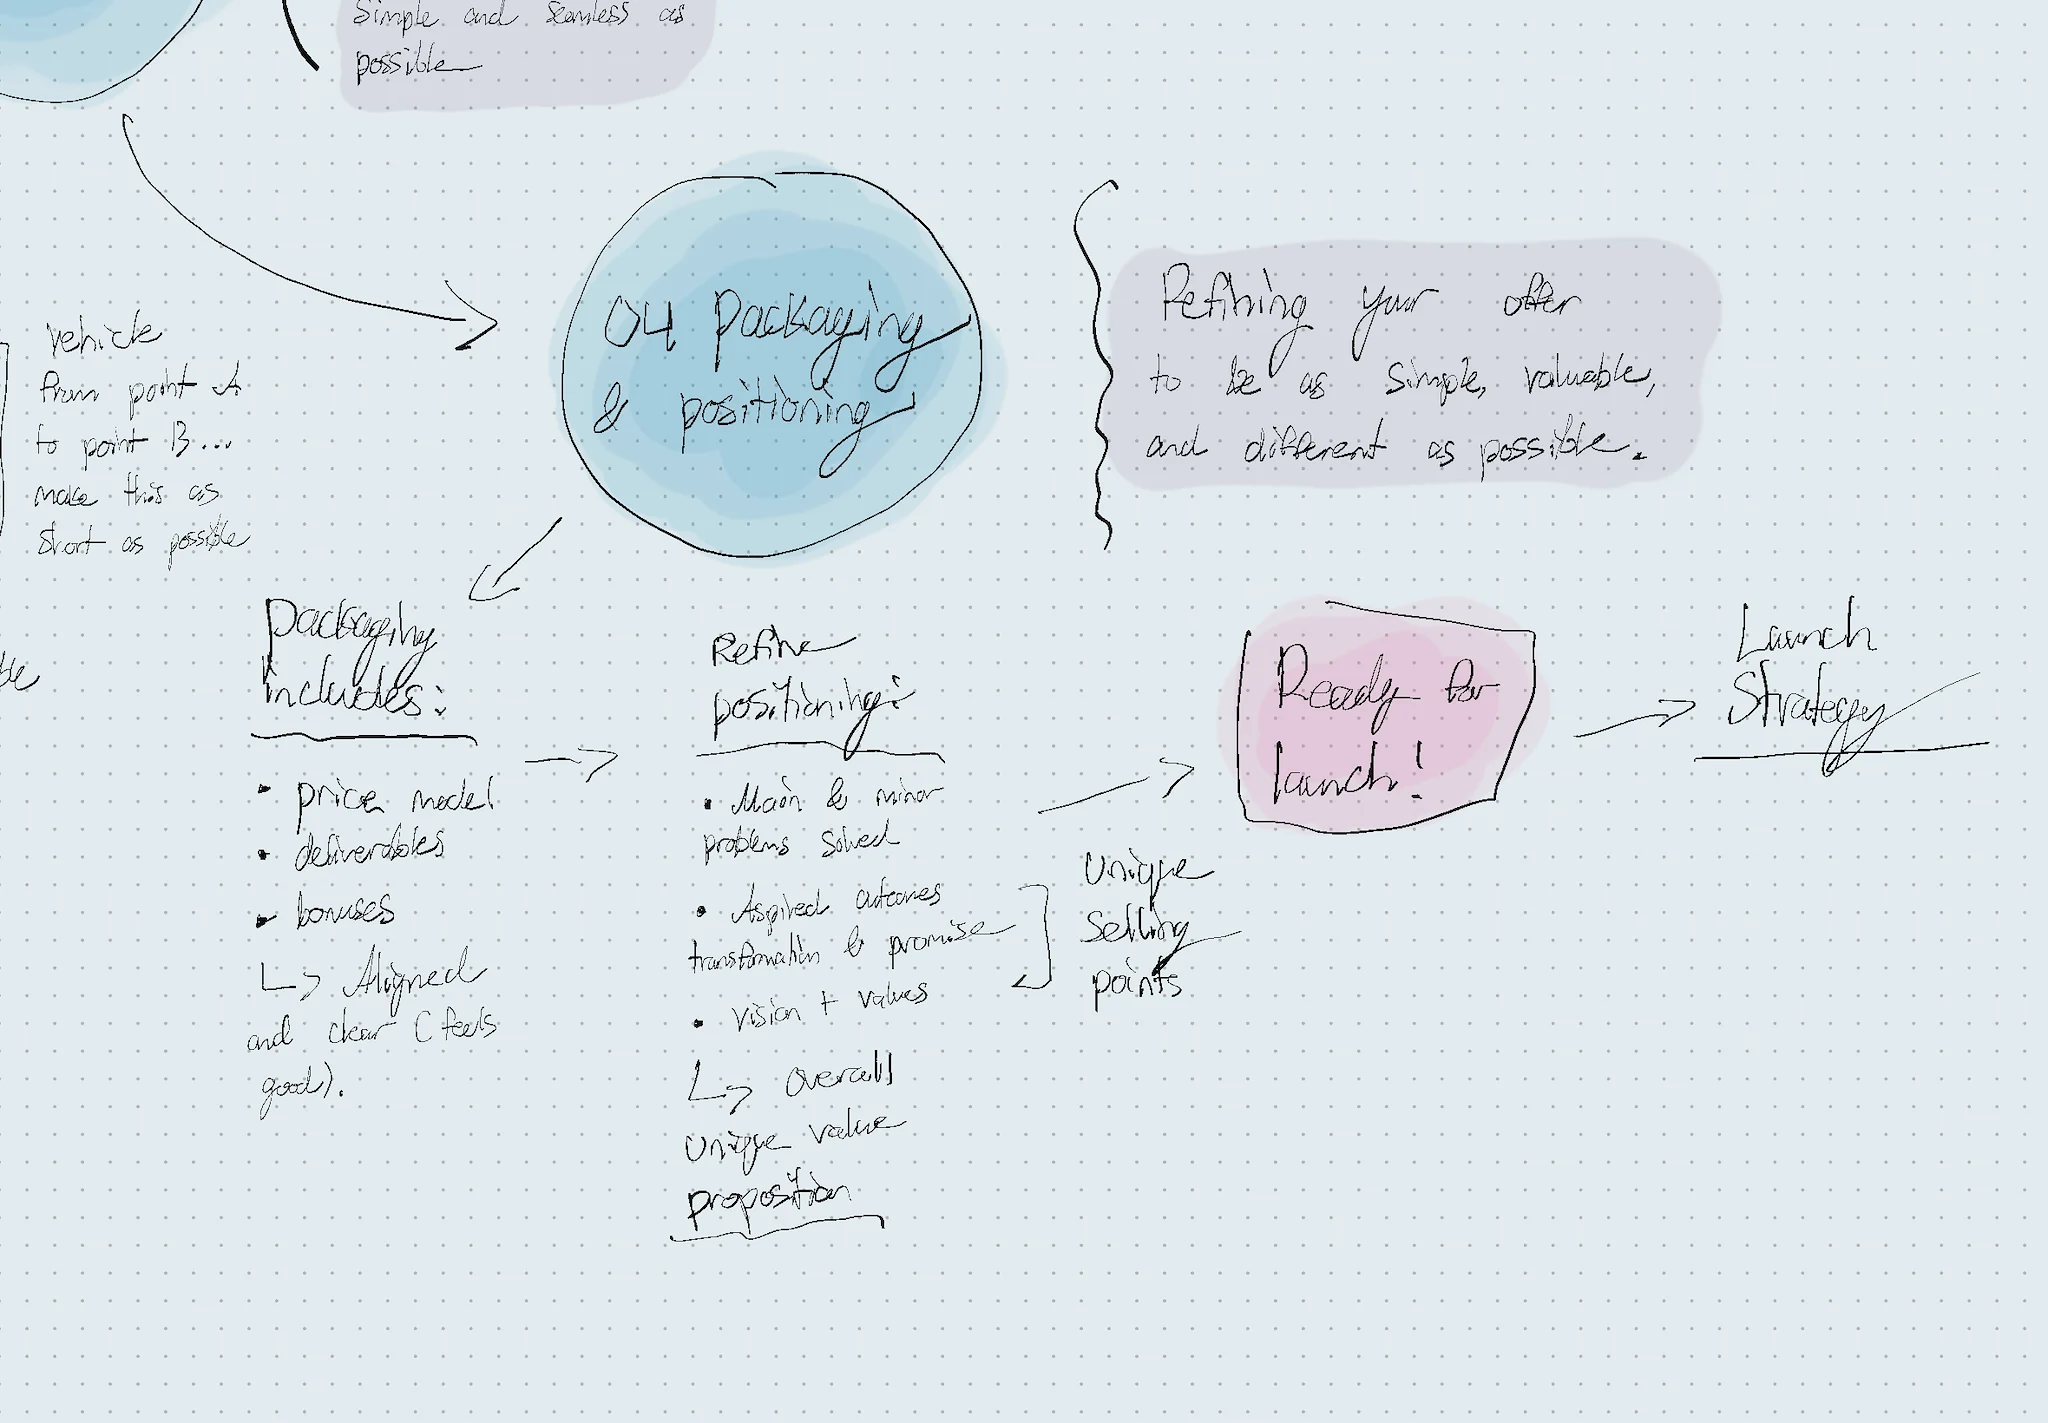 Simple and seamless as
possible
04 Packaging
& positioning
Refining your offer
to be as simple, valuable,
and different as possible.
vehicle
from point A
to point B...
make this as
short as possible
Packaging
includes:
• price model
• deliverables
• bonuses
↳ Aligned
and clear (feels
good).
Refine
positioning:
• Main & minor
problems solved
• Aspired outcomes
transformation & promise
• vision + values
↳ overall
unique value
proposition
Unique
Selling
points
Ready for
launch!
Launch
Strategy